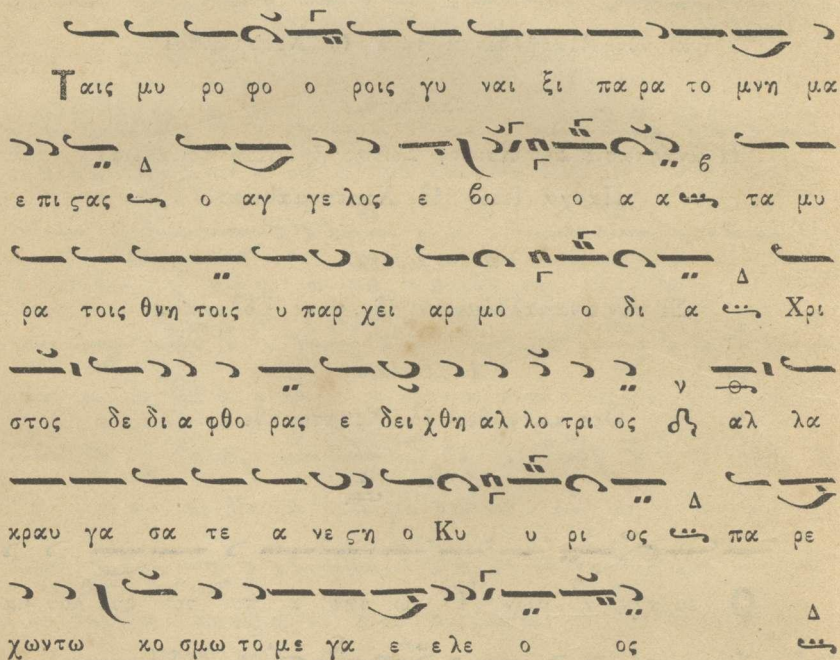 Ταις μυ ρο φο ο ροις γυ ναι ξι πα ρα το μνη μα
ε πι ϛας ο αγ γε λος ε βο ο α α τα μυ
ρα τοις θνη τοις υ παρ χει αρ μο ο δι α Χρι
στος δε δι α φθο ρας ε δει χθη αλ λο τρι ος αλ λα
κραυ γα σα τε α νε ϛη ο Κυ υ ρι ος πα ρε
χωντω κο σμω το με γα ε ε λε ο ος